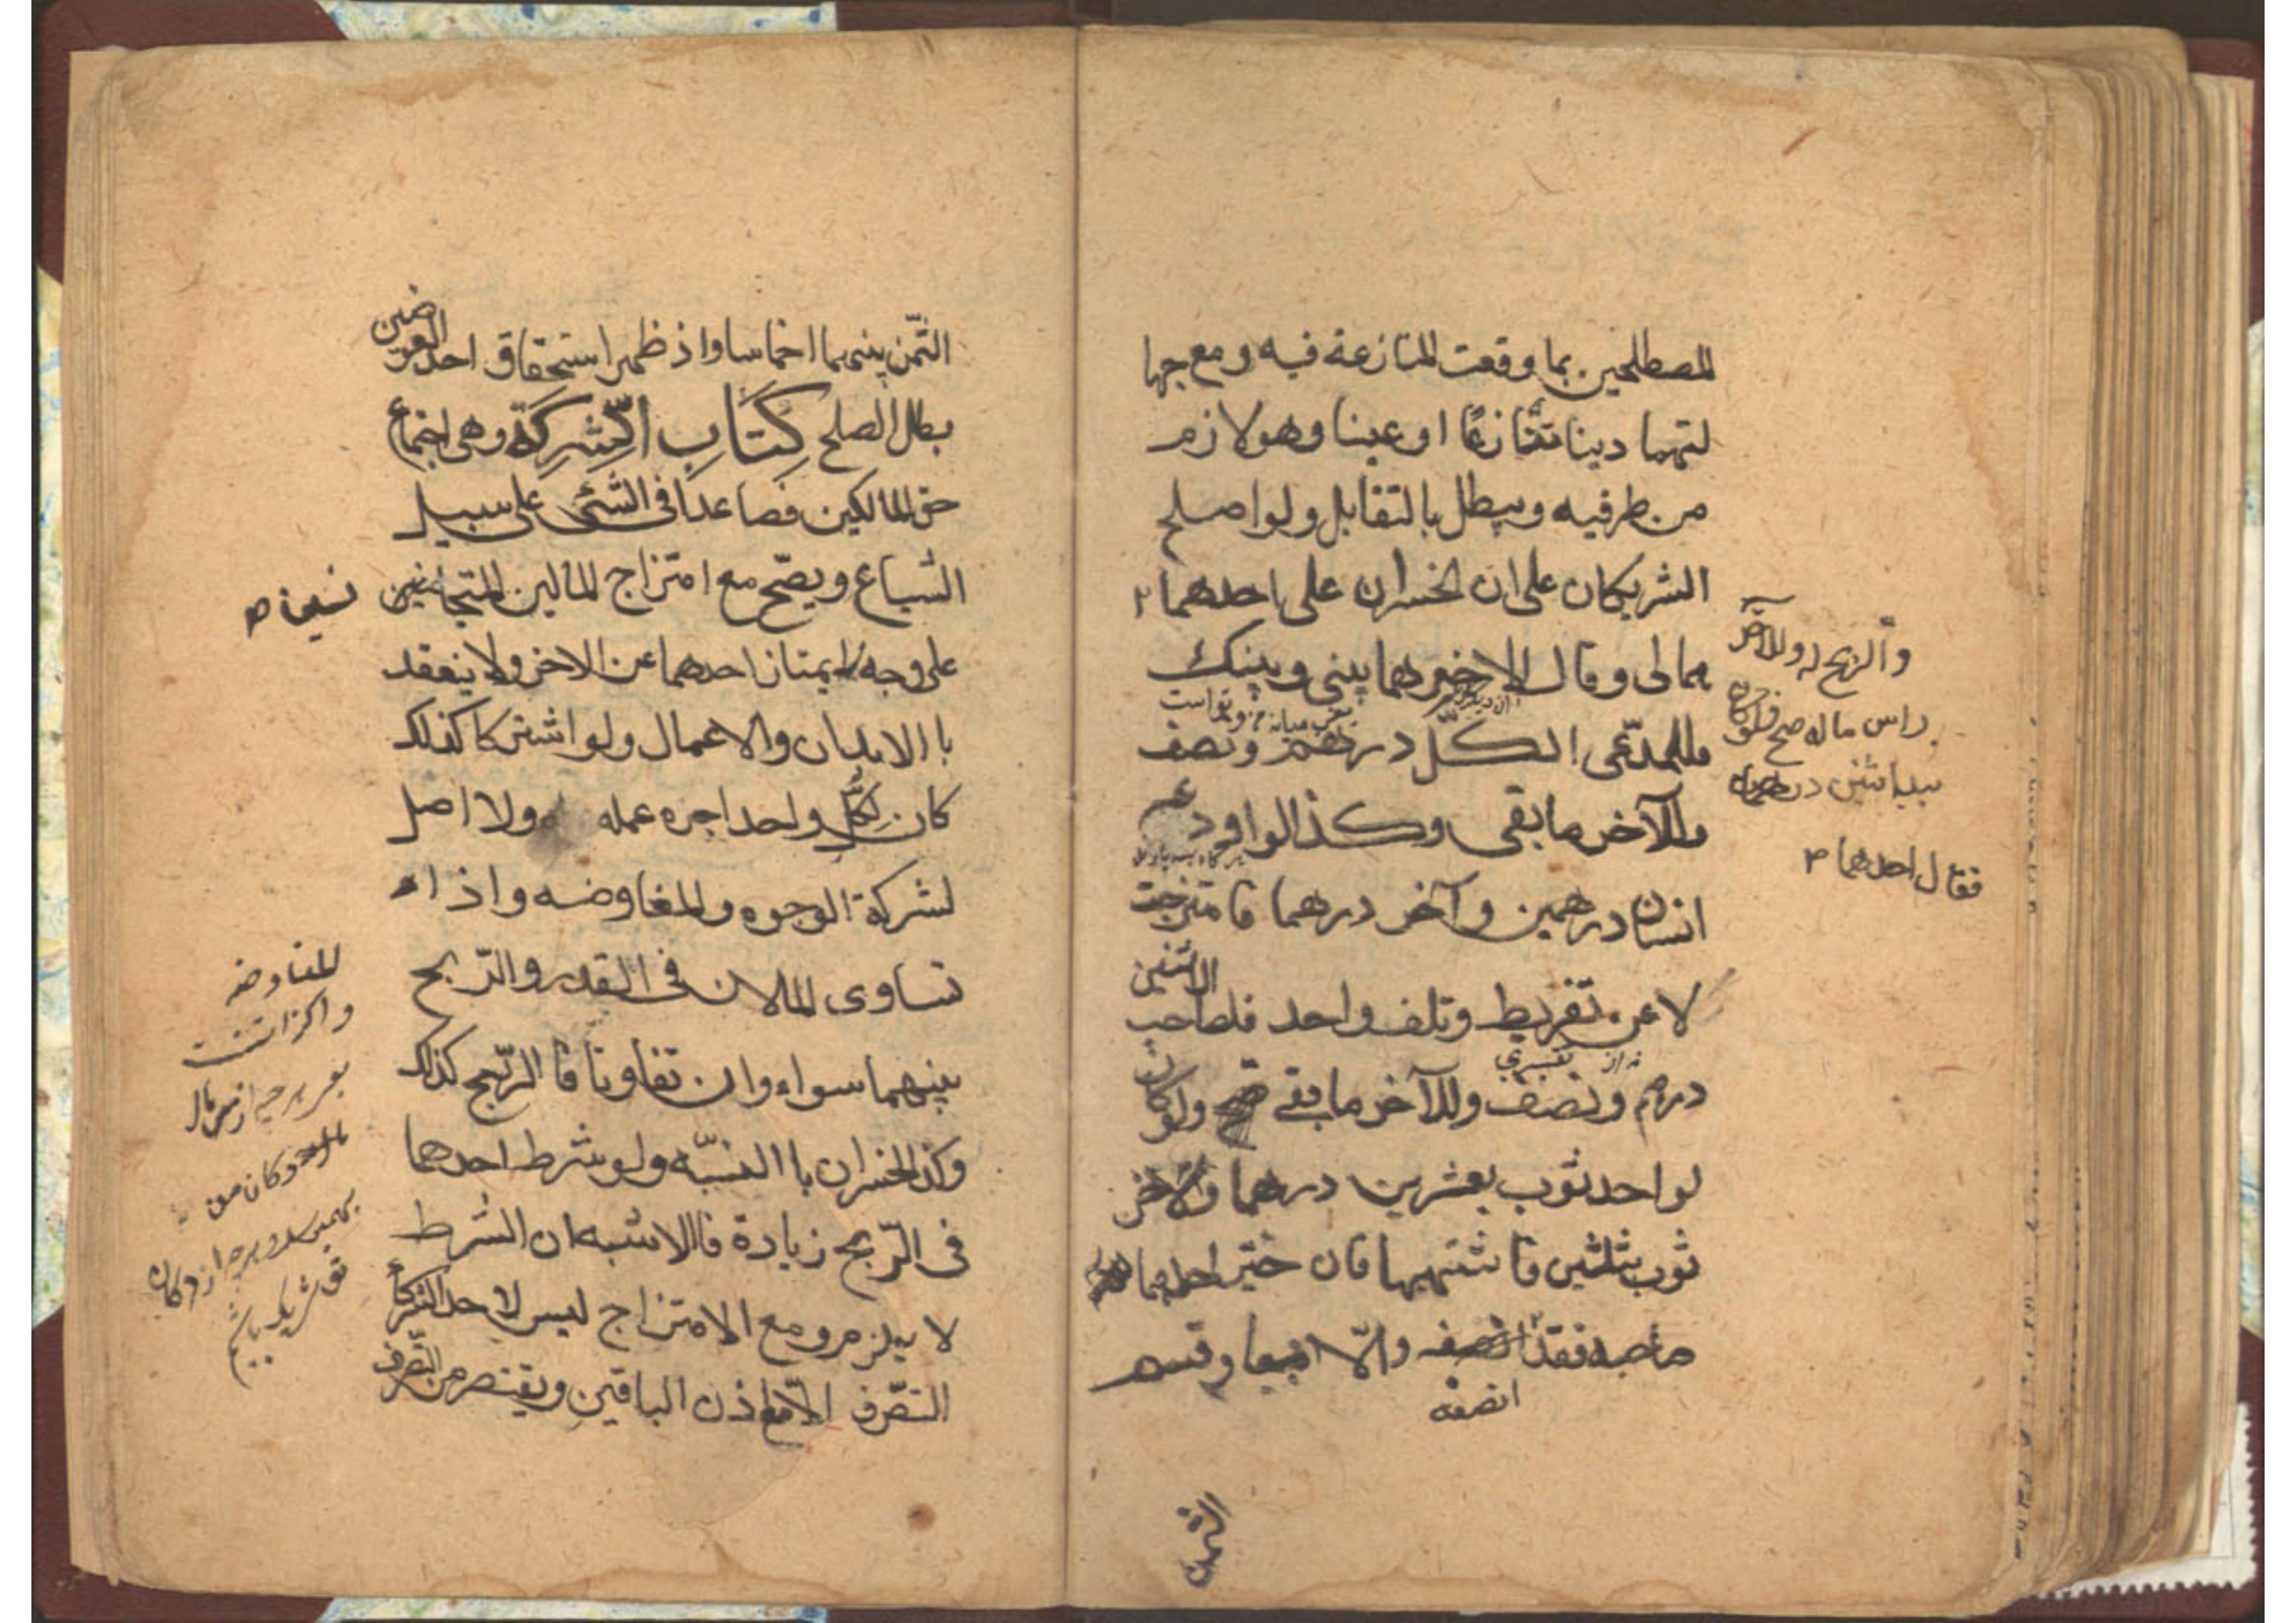 المصطلحين بما وقعت المنازعة فيه ومع جها
لتهما دينا تنازعًا او عينا وهو لازم
من طرفيه ويبطل بالتقابل ولو اصلح
الشريكان على ان الخسران على احدهما ٢
والربح له وللآخر
راس ماله صح فلو كان
بيد اثنين درهمان
فقال احدهما ٣
هما لى وقال الاخر هما بينى وبينك
فللمدعى الكلّ درهم ونصف
وللآخر ما بقى وكذا لو اودعه
انسان درهمين وآخر درهما فامتزجت
لا عن تفريط وتلف واحد فلصاحب الاثنين
نه از تقصيرى
درهم ونصف وللآخر ما بقى ولو كان
لواحد ثوب بعشرين درهما وللاخر
ثوب بثلثين فاشتبهها فان خيّر احدهما
صاحبه فقد انصفه والّا بيعا وقسم
انصفه
الثمن
الثّمن بينهما اخماسا واذ ظهر استحقاق احد العوضين
بطل الصلح كِتَابِ الشِّرِكَة وهى اجتماع
حق المالكين فصاعدًا فى الشئ على سبيل
الشياع ويصّح مع امتزاج المالين المتجانسين
على وجه لا يمتاز احدهما عن الاخر ولا ينعقد
با الابدان والاعمال ولو اشتركا كذلك
كان لكلّ واحد اجره عمله ولا اصل
لشركة الوجوه والمفاوضه واذا
تساوى المالان فى القدر والرّبح
بينهما سواء وان تفاوتا فا الرّبح كذلك
وكذ الخسران با النسبّه ولو شرط احدهما
فى الرّبح زيادة فا الاشبه ان الشرط
لا يلزم ومع الامتزاج ليس لاحد الشركاء
التصّرف الّا مع اذن الباقين ويقتصر من التّصرف
المفاوضه